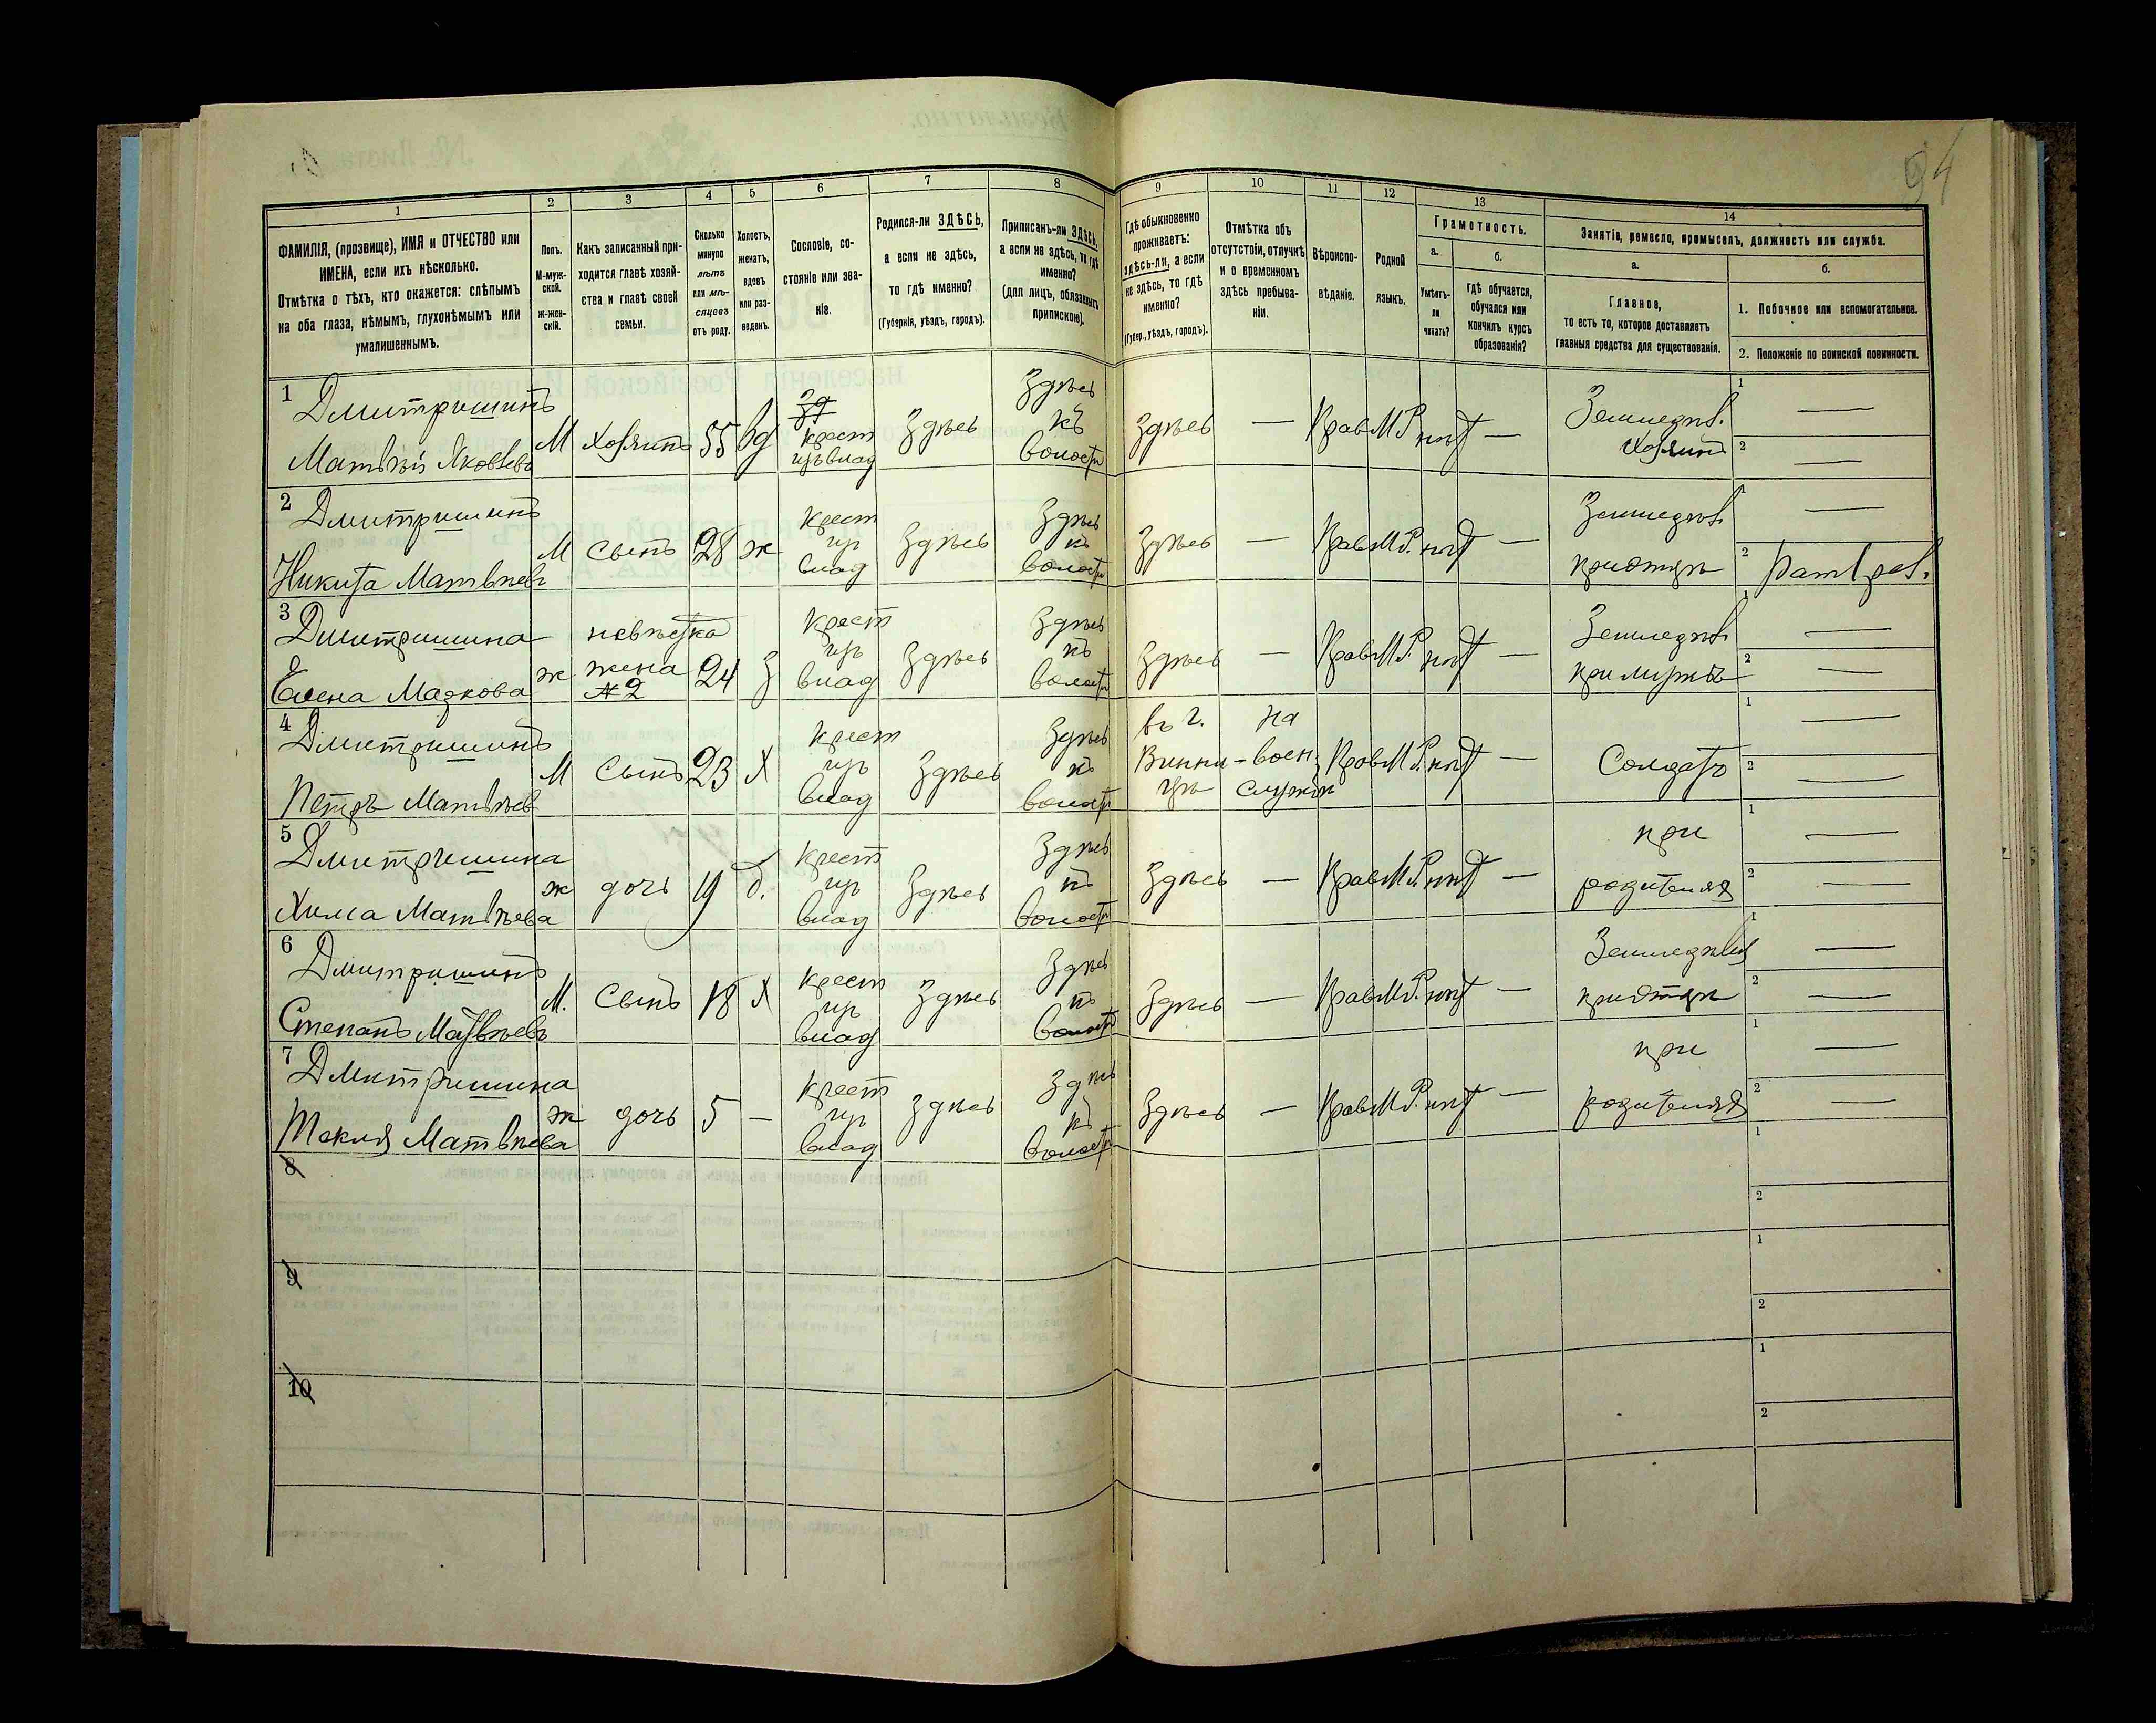 94
1
2
3
4
5
6
7
8
9
10
11
12
13
14
ФАМИЛІЯ, (прозвище), ИМЯ и ОТЧЕСТВО или
ИМЕНА, если ихъ нѣсколько.
Отмѣтка о тѣхъ, кто окажется: слѣпымъ
на оба глаза, нѣмымъ, глухонѣмымъ или
умалишеннымъ.
Полъ.
М-муж-
ской.
Ж-жен-
скій.
Какъ записанный при-
ходится главѣ хозяй-
ства и главѣ своей
семьи.
Сколько
минуло
лѣтъ
или мѣ-
сяцевъ
отъ роду.
Холостъ,
женатъ,
вдовъ
или раз-
веденъ.
Сословіе, со-
стояніе или зва-
ніе.
Родился-ли ЗДѢСЬ,
а если не здѣсь,
то гдѣ именно?
(Губернія, уѣздъ, городъ).
Приписанъ-ли ЗДѢСЬ,
а если не здѣсь, то гдѣ
именно?
(для лицъ, обязанныхъ
припискою).
Гдѣ обыкновенно
проживаетъ:
здѣсь-ли, а если
не здѣсь, то гдѣ
именно?
(Губер., уѣздъ, городъ).
Отмѣтка объ
отсутствіи, отлучкѣ
и о временномъ
здѣсь пребыва-
ніи.
Вѣроиспо-
вѣданіе.
Родной
языкъ.
Грамотность.
а.
б.
Умѣетъ-
ли
читать?
гдѣ обучается,
обучался или
кончилъ курсъ
образованія?
Занятіе, ремесло, промыселъ, должность или служба.
а.
б.
Главное,
то есть то, которое доставляетъ
главныя средства для существованія.
1. Побочное или вспомогательное.
2. Положеніе по воинской повинности.
1
Дмитришинъ
Матвѣй Яковлевъ
М Хозяинъ 55 вд
крест
изъ влад
Здѣсь
Здѣсь
къ
волости
Здѣсь — Прав М.Р. нѣт —
Земледѣл.
Хозяинъ
1 —
2 —
2
Дмитришинъ
Никита Матвѣевъ
М сынъ 28 ж
крест
изъ
влад
Здѣсь
Здѣсь
къ
волости
Здѣсь — Прав М.Р. нѣт —
Земледѣл
при отцѣ
1 —
2 Рат 1 раз.
3
Дмитришина
Елена Маркова
ж
невѣстка
жена
№ 2
24 З
крест
изъ
влад
Здѣсь
Здѣсь
къ
волости
Здѣсь — Прав М.Р. нѣт —
Земледѣл
при мужѣ
1 —
2 —
4
Дмитришинъ
Петръ Матвѣев
М Сынъ 23 Х
крест
изъ
влад
Здѣсь
Здѣсь
къ
волости
въ г.
Винни-
цѣ
На
воен.
службѣ
Прав М.Р. нѣт —
Солдатъ
1 —
2 —
5
Дмитришина
Хима Матвѣева
ж дочь 19 д.
крест
изъ
влад
Здѣсь
Здѣсь
къ
волости
Здѣсь — Прав М.Р. нѣт —
при
родителях
1 —
2 —
6
Дмитришинъ
Степанъ Матвѣевъ
М. Сынъ 18 Х
крест
изъ
влад
Здѣсь
Здѣсь
къ
волости
Здѣсь — Прав М.Р. нѣт —
Земледѣл
при отцѣ
1 —
2 —
7
Дмитришина
Текля Матвѣева
ж дочь 5 —
крест
изъ
влад
Здѣсь
Здѣсь
къ
волости
Здѣсь — Прав М.Р. нѣт —
при
родителях
1 —
2 —
8
1
2
9
1
2
10
1
2